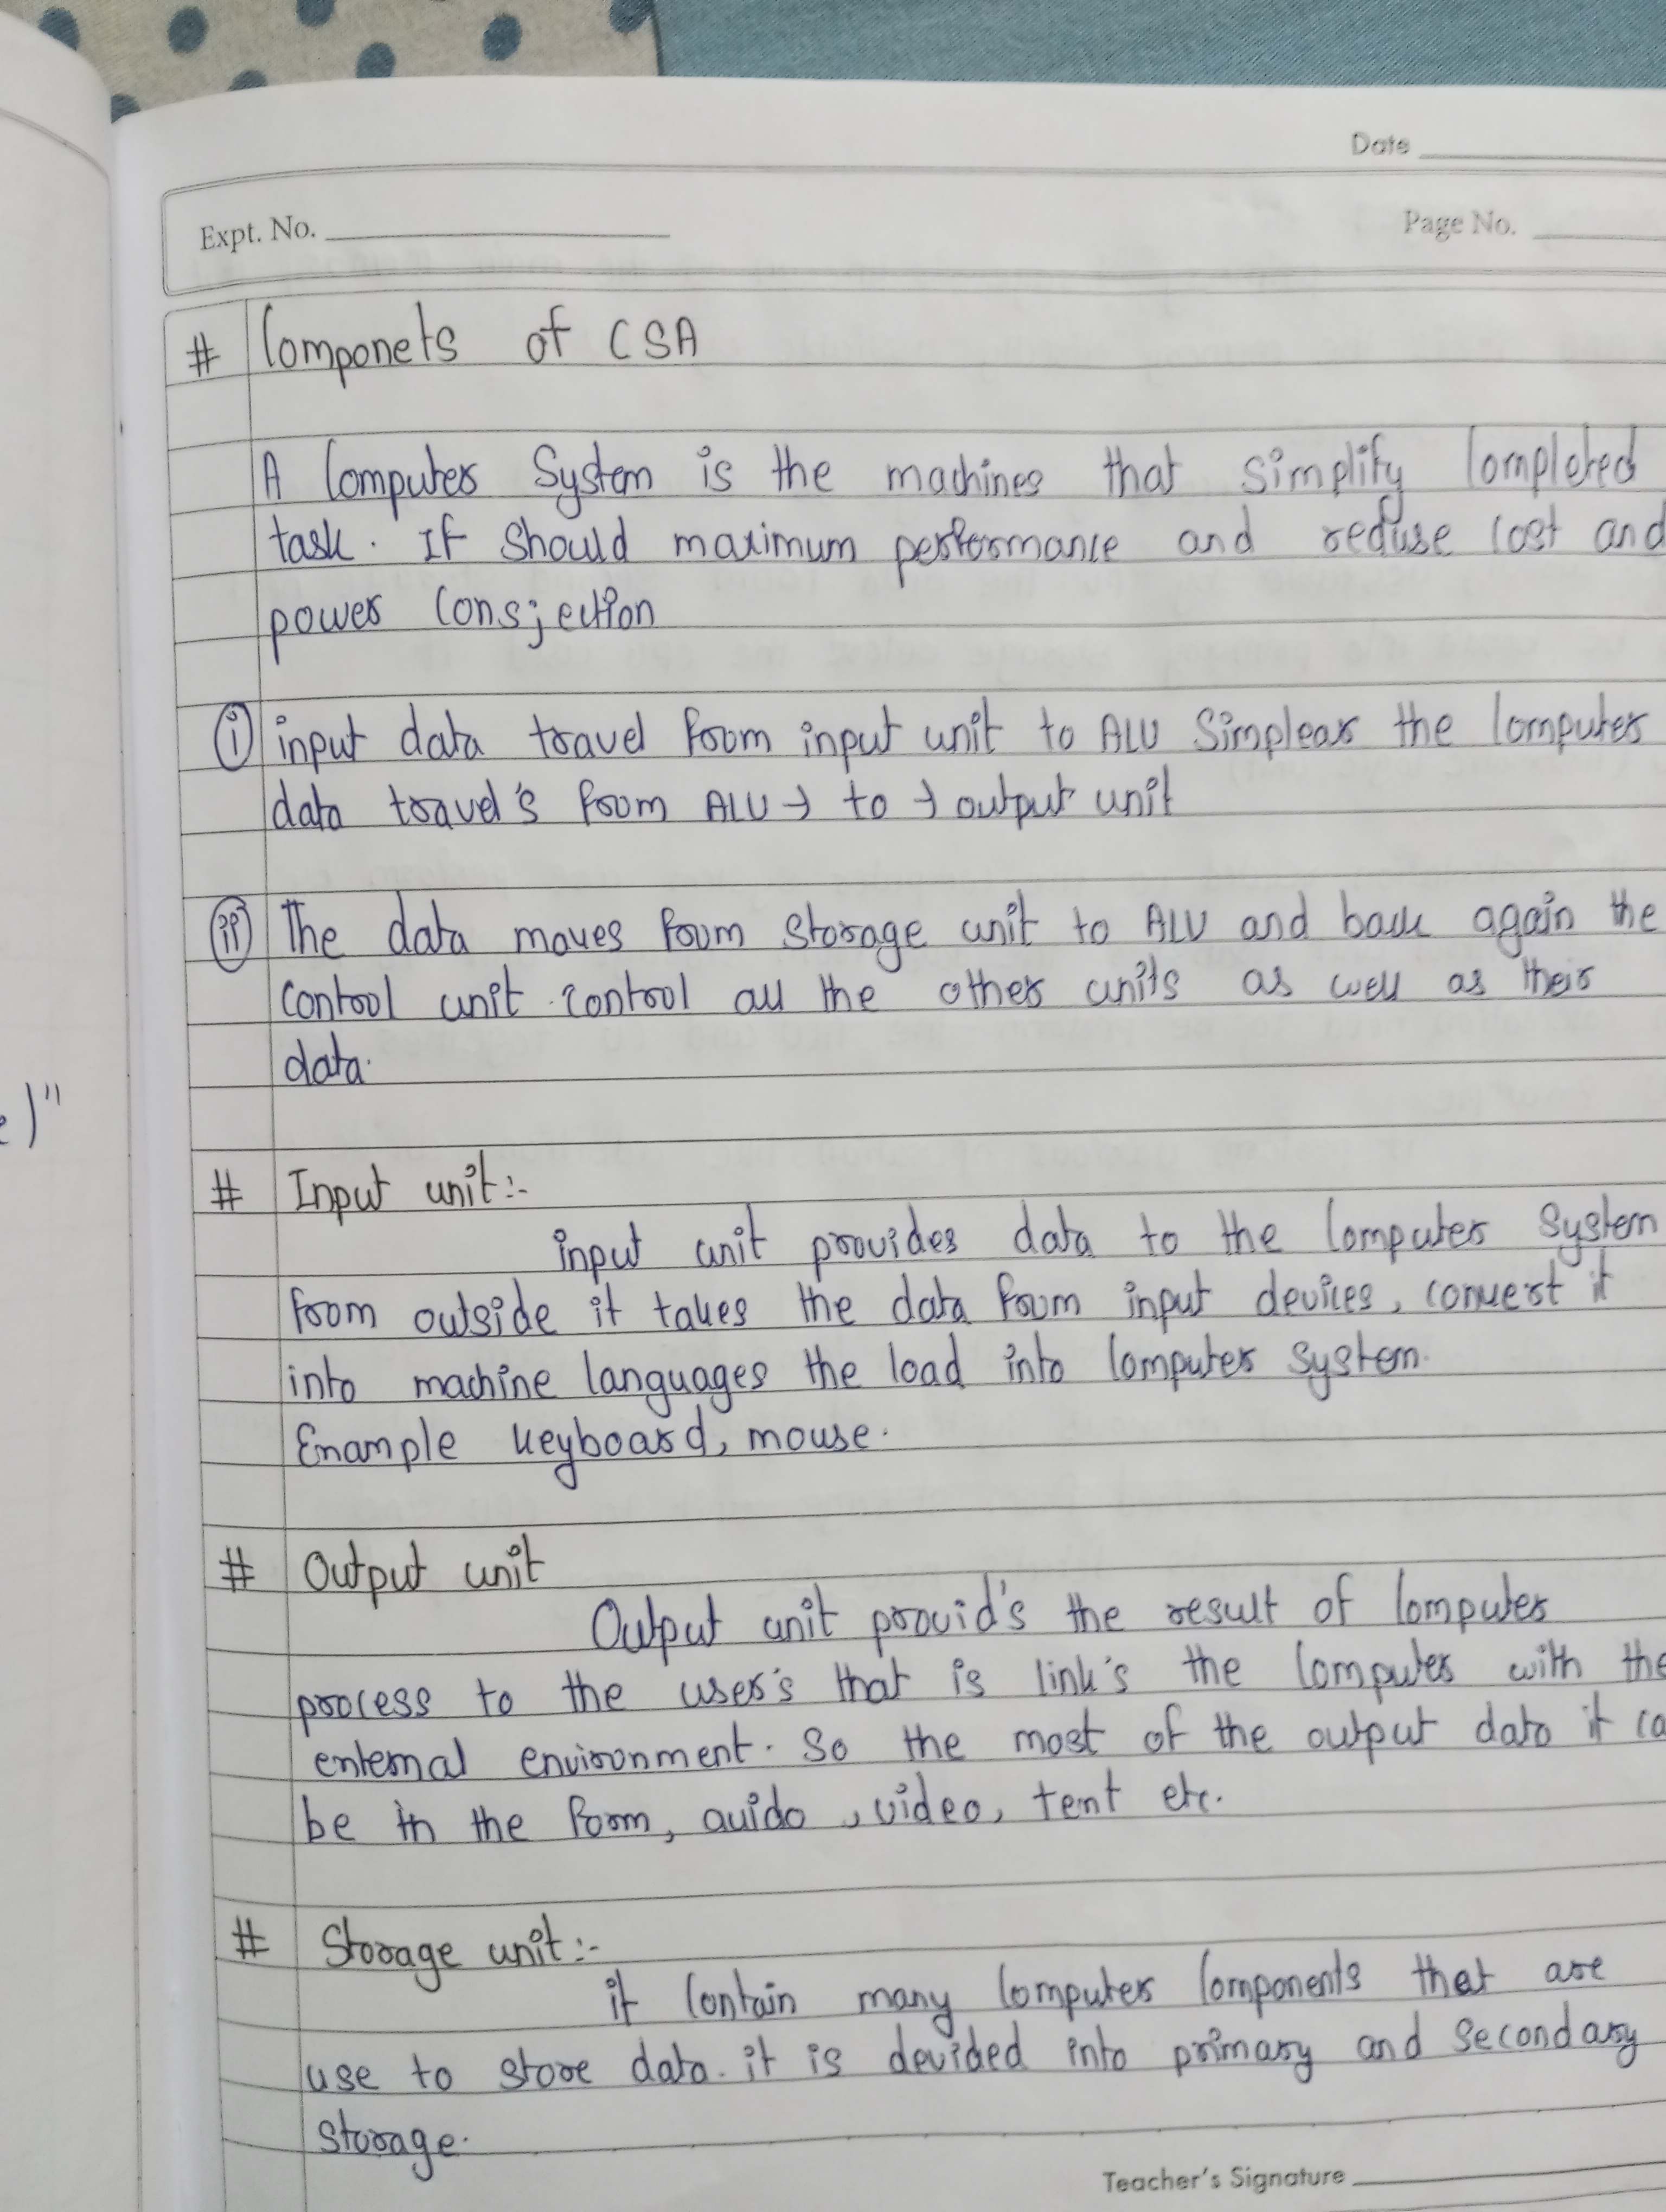 Date
Expt. No.
Page No.
# Componets of CSA
A Computer System is the machines that simplify
task. It should maximum performance and reduse cost and
power Consjection
(i) input data travel from input unit to ALU Simplear the Computer
data travel's from ALU → to → output unit
(ii) The data moves from Storage unit to ALU and back again the
Control unit control all the other units as well as their
data.
e)"
# Input unit:-
input unit provides data to the Computer System
from outside it takes the data from input devices, convert it
into machine languages the load into Computer system.
Example keyboard, mouse.
# Output unit
Output unit provid's the result of Computer
process to the user's that is link's the Computer with the
external environment. So the most of the output data it ca
be in the form, auido, video, text etc.
# Storage unit:-
it Contain many Computer Components that are
use to store data. it is devided into primary and Secondary
Storage.
Teacher's Signature